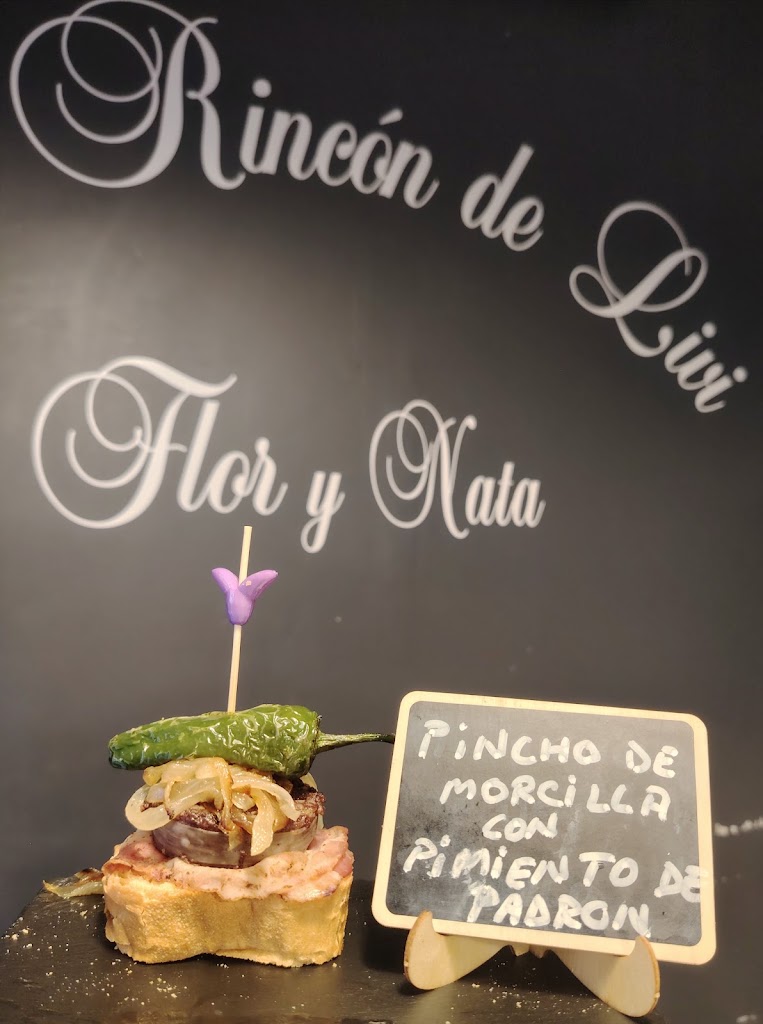 Rincón de Livi
Flor y Nata
PiNCHO DE
MORCiLLA
CON
PiMiENTO DE
PADRON